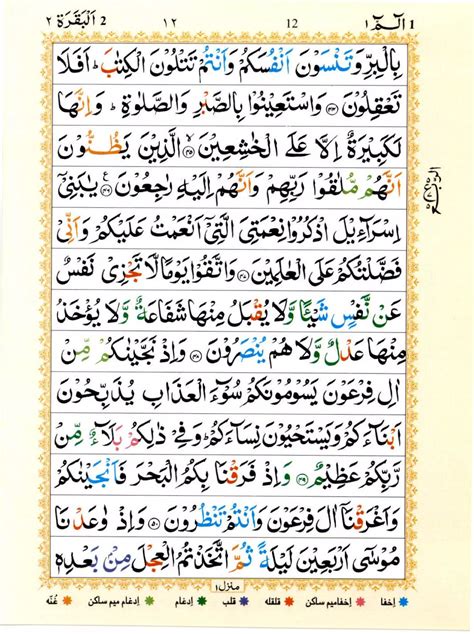 2 اَلْبَقَرَة ٢ ١٢ 12 الٓمّٓ ١ 1
بِالْبِرِّ وَتَنْسَوْنَ اَنْفُسَكُمْ وَاَنْتُمْ تَتْلُوْنَ الْكِتٰبَ ؕ اَفَلَا
تَعْقِلُوْنَ ﴿۴۴﴾ وَاسْتَعِيْنُوْا بِالصَّبْرِ وَالصَّلٰوةِ ؕ وَاِنَّهَا
لَكَبِيْرَةٌ اِلَّا عَلَى الْخٰشِعِيْنَ ﴿۴۵﴾ الَّذِيْنَ يَظُنُّوْنَ
اَنَّهُمْ مُّلٰقُوْا رَبِّهِمْ وَاَنَّهُمْ اِلَيْهِ رٰجِعُوْنَ ﴿۴۶﴾ يٰبَنِىْٓ
اِسْرَآءِيْلَ اذْكُرُوْا نِعْمَتِىَ الَّتِىْٓ اَنْعَمْتُ عَلَيْكُمْ وَاَنِّىْ
فَضَّلْتُكُمْ عَلَى الْعٰلَمِيْنَ ﴿۴۷﴾ وَاتَّقُوْا يَوْمًا لَّا تَجْزِىْ نَفْسٌ
عَنْ نَّفْسٍ شَيْـًٔا وَّلَا يُقْبَلُ مِنْهَا شَفَاعَةٌ وَّلَا يُؤْخَذُ
مِنْهَا عَدْلٌ وَّلَا هُمْ يُنْصَرُوْنَ ﴿۴۸﴾ وَاِذْ نَجَّيْنٰكُمْ مِّنْ
اٰلِ فِرْعَوْنَ يَسُوْمُوْنَكُمْ سُوْٓءَ الْعَذَابِ يُذَبِّحُوْنَ
اَبْنَآءَكُمْ وَيَسْتَحْيُوْنَ نِسَآءَكُمْ ؕ وَفِىْ ذٰلِكُمْ بَلَآءٌ مِّنْ
رَّبِّكُمْ عَظِيْمٌ ﴿۴۹﴾ وَاِذْ فَرَقْنَا بِكُمُ الْبَحْرَ فَاَنْجَيْنٰكُمْ
وَاَغْرَقْنَآ اٰلَ فِرْعَوْنَ وَاَنْتُمْ تَنْظُرُوْنَ ﴿۵۰﴾ وَاِذْ وٰعَدْنَا
مُوْسٰٓى اَرْبَعِيْنَ لَيْلَةً ثُمَّ اتَّخَذْتُمُ الْعِجْلَ مِنْ بَعْدِهٖ
منزل ١
اخفا اخفامیم ساکن قلقله قلب ادغام ادغام میم ساکن غُنّه